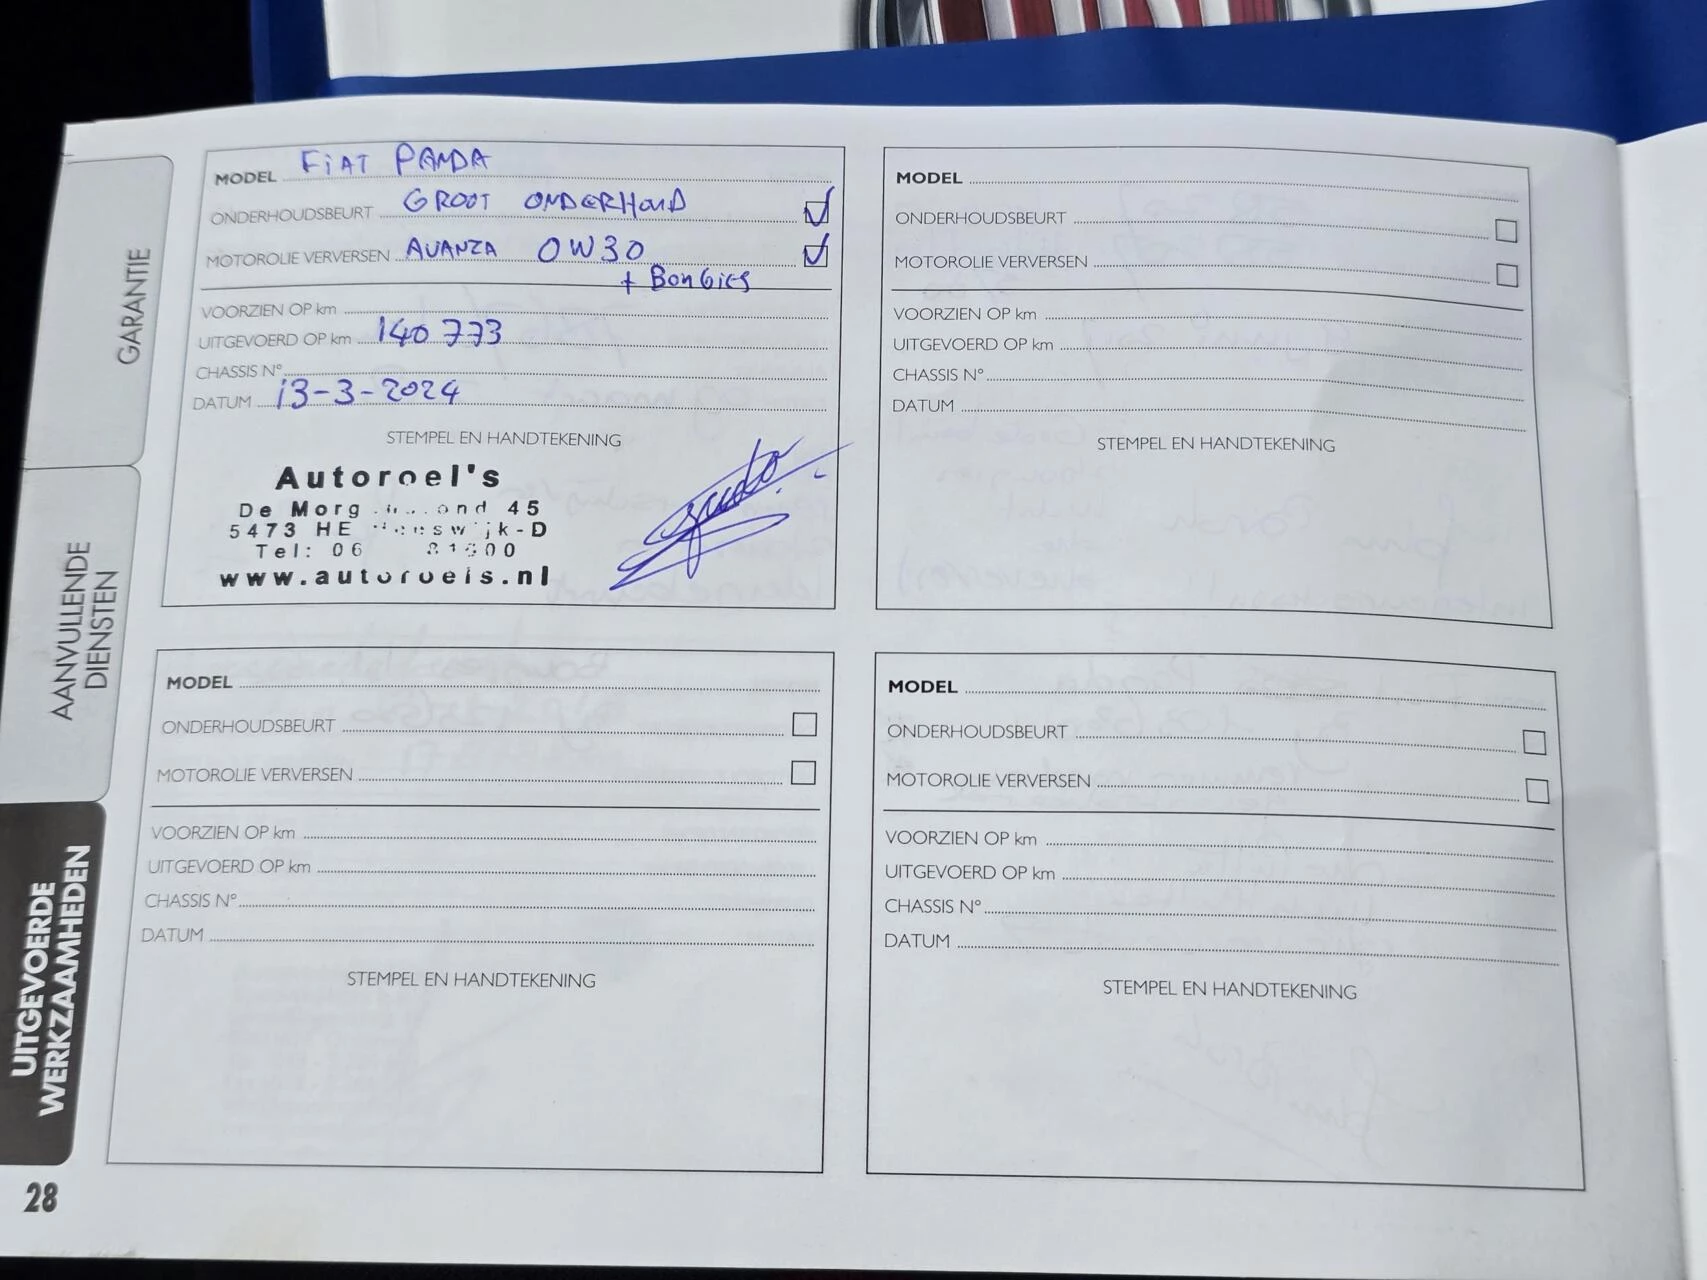 MODEL FiAT PANDA
ONDERHOUDSBEURT GROOT ONDERHOUD
MOTOROLIE VERVERSEN AVANZA 0W30
+ BONGIES
VOORZIEN OP km
UITGEVOERD OP km 140 773
CHASSIS N°
DATUM 13-3-2024
STEMPEL EN HANDTEKENING
Autoroel's
De Morg 45
5473 HE -D
Tel: 06
www.autoroels.nl
MODEL
ONDERHOUDSBEURT
MOTOROLIE VERVERSEN
VOORZIEN OP km
UITGEVOERD OP km
CHASSIS N°
DATUM
STEMPEL EN HANDTEKENING
MODEL
ONDERHOUDSBEURT
MOTOROLIE VERVERSEN
VOORZIEN OP km
UITGEVOERD OP km
CHASSIS N°
DATUM
STEMPEL EN HANDTEKENING
MODEL
ONDERHOUDSBEURT
MOTOROLIE VERVERSEN
VOORZIEN OP km
UITGEVOERD OP km
CHASSIS N°
DATUM
STEMPEL EN HANDTEKENING
GARANTIE
AANVULLENDE
DIENSTEN
UITGEVOERDE
WERKZAAMHEDEN
28